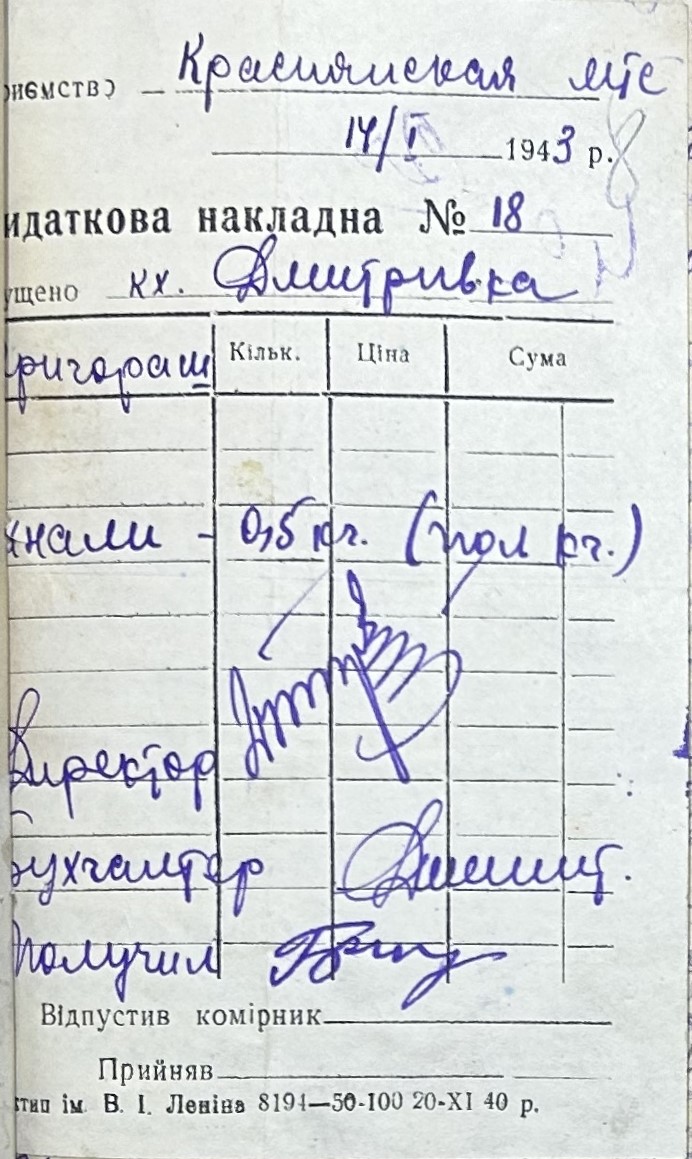 риємств) Краснянская мтс
14/I 1943 р.
идаткова накладна № 18
ущено кх. Дмитривка
Григораш Кільк. Ціна Сума
хнали - 0,5 кг. (пол кг.)
Директор
Бухгалтер
Получил
Відпустив комірник
Прийняв
тип ім. В. І. Леніна 8194—50-100 20-XI 40 р.